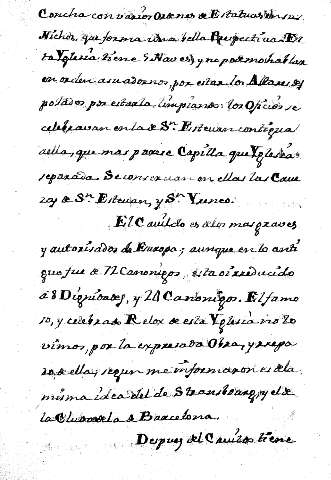 Concha con varios Ordenes de Estatuas en sus
Nichos, que forma una bella Perspectiva. Es
ta Yglesia tiene 5 Naves, y no podemos hablar
en orden a sus adornos, por estar los Altares des
poblados, por estarla limpiando: los Oficios se
celebravan en la de Sn. Estevan contigua
a ella, que mas parese Capilla que Yglesia
separada. Se conservan en ellas las Cave
zas de Sn. Estevan, y Sn. Yreneo.
El Cavildo es de los mas graves
y autorisados de Europa; aunque en lo anti
guo fue de 72 Canonigos, esta oi reducido
á 8 Dignidades, y 24 Canonigos. El famo
so, y celebrado Relox de esta Yglesia no lo
vimos, por la expresada Obra, y repa
ro de ella; segun me informaron es de la
misma idea del de Strasbourg, y el de
la Ciudadela de Barcelona.
Despues del Cavildo tiene